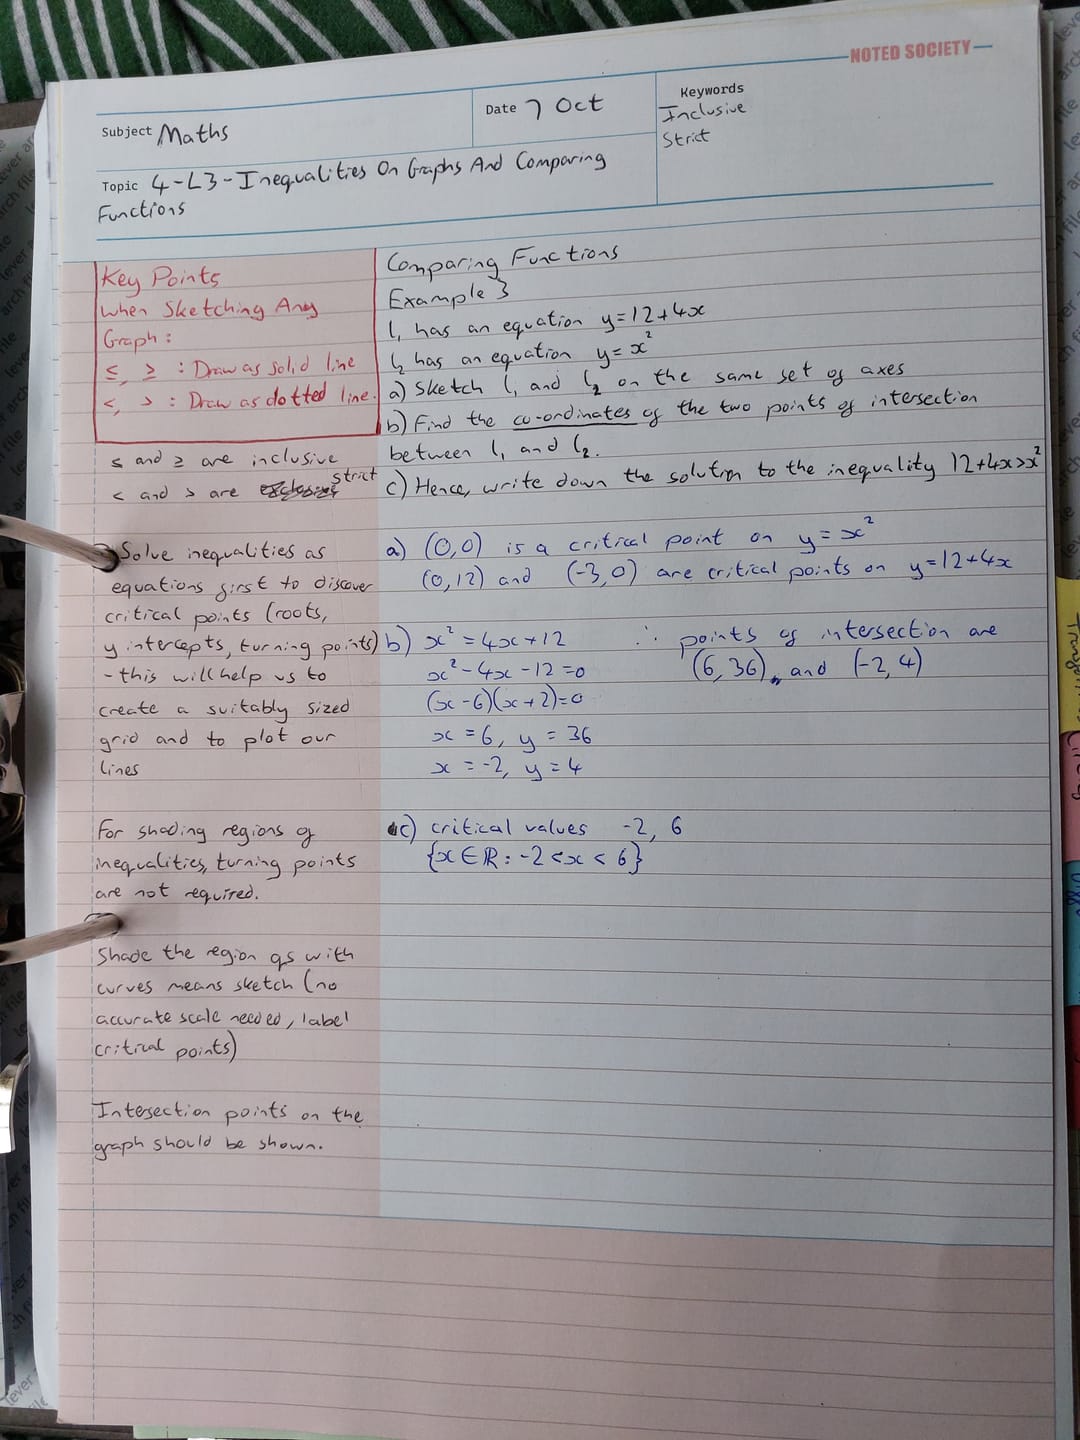 NOTED SOCIETY
Subject Maths
Date 7 Oct
Keywords
Inclusive
Strict
Topic 4-L3-Inequalities On Graphs And Comparing
Functions
Key Points
When Sketching Any
Graph:
≤, ≥ : Draw as solid line
<, > : Draw as dotted line.
≤ and ≥ are inclusive
< and > are strict
Solve inequalities as
equations first to discover
critical points (roots,
y intercepts, turning points)
- this will help us to
create a suitably sized
grid and to plot our
lines
For shading regions of
inequalities, turning points
are not required.
Shade the region qs with
curves means sketch (no
accurate scale needed, label
critical points)
Intersection points on the
graph should be shown.
Comparing Functions
Example 3
l₁ has an equation y=12+4x
l₂ has an equation y=x²
a) Sketch l₁ and l₂ on the same set of axes
b) Find the co-ordinates of the two points of intersection
between l₁ and l₂.
c) Hence, write down the solution to the inequality 12+4x>x²
a) (0,0) is a critical point on y=x²
(0,12) and (-3,0) are critical points on y=12+4x
b) x²=4x+12
x²-4x-12=0
(x-6)(x+2)=0
x=6, y=36
x=-2, y=4
∴ points of intersection are
(6,36) and (-2,4)
c) critical values -2, 6
{x∈ℝ: -2<x<6}